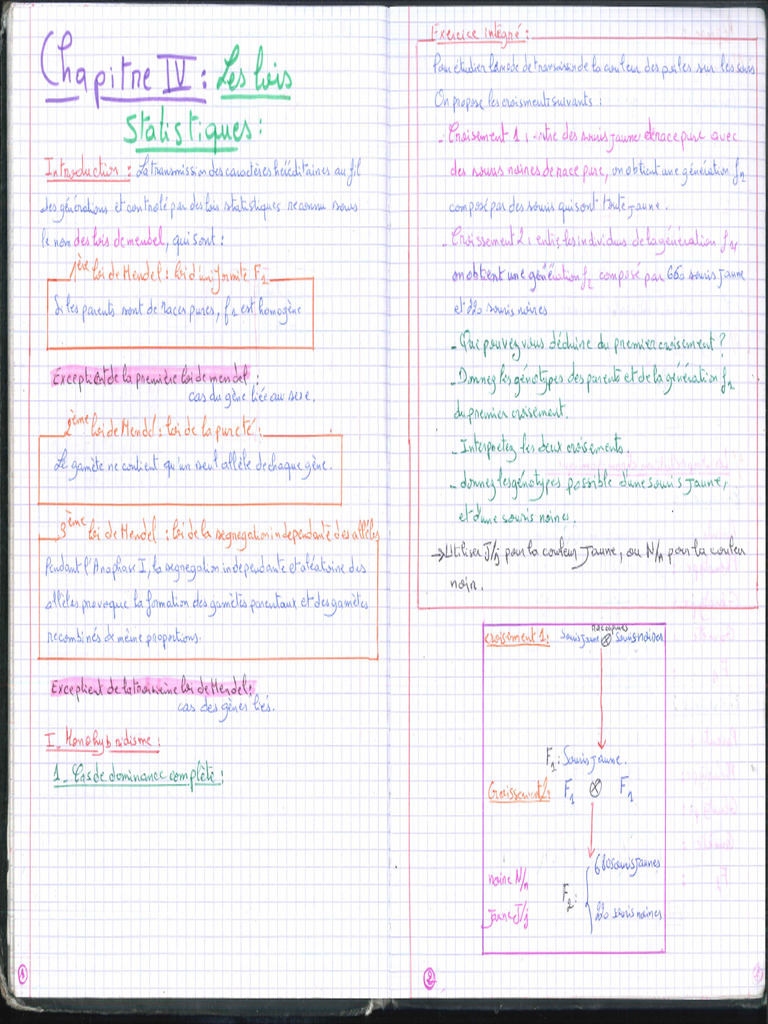 Chapitre IV : Les lois
Statistiques :
Introduction : La transmission des caractères héréditaires au fil
des générations et controlé par des lois statistiques reconnu sous
le non des lois de mendel, qui sont :
1ère loi de Mendel : loi d'uniformité F1
Si les parents sont de races pures, f1 est homogène
Exception de la première loi de mendel :
cas du gène liée au sexe.
2ème loi de Mendel : loi de la pureté :
Le gamète ne contient qu'un seul allèle de chaque gène.
3ème loi de Mendel : loi de la segregation independante des allèles
Pendant l'Anaphase I, la segregation independante et aléatoire des
allèles provoque la formation des gamètes parentaux et des gamètes
recombinés de même proportions.
Exception de la troisième loi de Mendel :
cas des gènes liés.
I_ Monohybridisme :
1_ Cas de dominance complète :
1
Exercice intégré :
Pour étudier le mode de transmission de la couleur des poiles sur les souris
On propose les croisment suivants :
- Croisement 1 : entre des souris jaune de race pure avec
des souris noires de race pure, on obtient une génération f1
composé par des souris qui sont toute jaune.
- Croissement 2 : entre les individus de la génération f1
on obtient une génération f2 composé par 660 souris jaune
et 220 souris noires
- Que pouvez vous déduire du premier croisement ?
- Donnez les génotypes des parents et de la génération f1
du premier croisement.
- Interpretez les deux croisements.
- donnez les génotypes possible d'une souris jaune,
et d'une souris noires.
→ Utiliser J/j pour la couleur jaune, ou N/n pour la couleur
noir.
croisement 1 : souris jaune ⊗ souris noires
races pures
F1 : Souris jaune.
Croissement 2 : F1 ⊗ F1
noire N/n
jaune J/j
F2 :
680 souris jaunes
220 souris noires
2